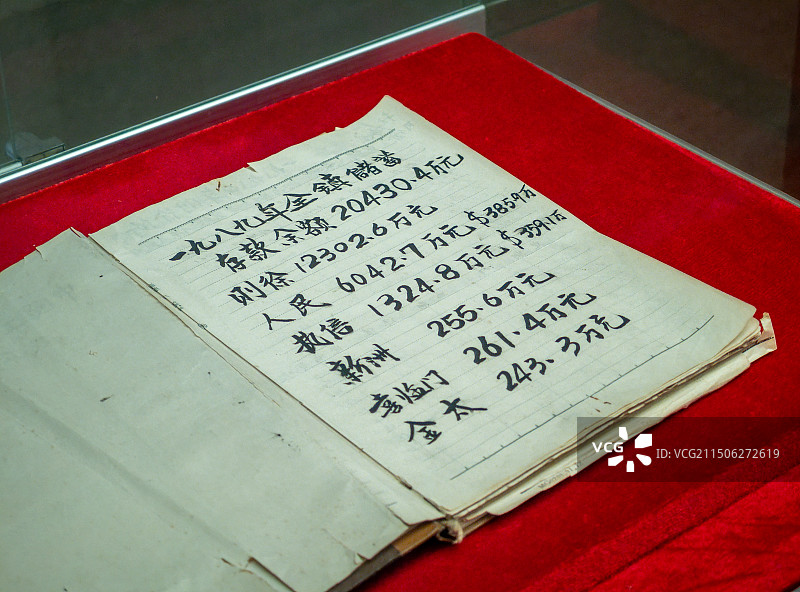 一九八九年全镇储蓄
存款余额 20430.4万元
则徐 12302.6万元
人民 6042.7万元 $385.9万
执信 1324.8万元 $359.1万
新洲 255.6万元
临门 261.4万元
金太 243.3万元
VCG
ID:VCG211506272619